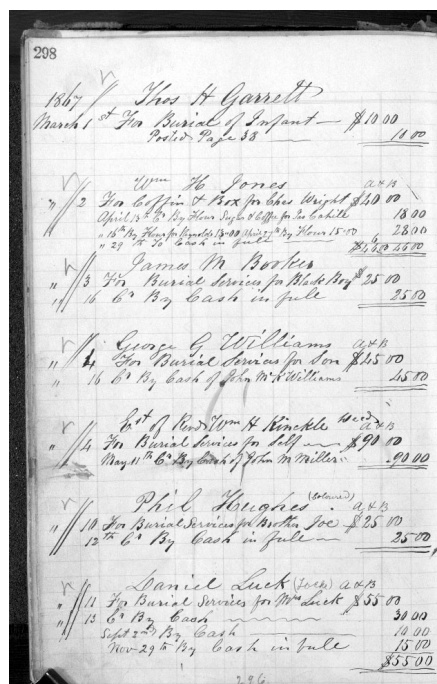 298
1867 Thos H Garrett
March 1st For Burial of Infant — $10 00
Posted Page 38 — 10 00
Wm H. Jones A & B
" 2 For Coffin & Box for Ches Wright $40 00
April 13th Cr By Flour Sugar & Coffee for Jas Cahill 18 00
" 16th By Flour for Reynolds 13=00 By Flour 15=00 28 00
" 29th To Cash in full 46 00
James M Booker
" 3 For Burial Services for Black Boy $25 00
" 16 Cr By Cash in full 25 00
George G Williams A & B
" 4 For Burial Services for Son $45 00
" 16 Cr By Cash of John McK Williams 45 00
Est of Revd Wm H Kinckle decd A & B
" 4 For Burial Services for Self — $90 00
May 11th Cr By Cash of John M Miller 90 00
Phil Hughes (Coloured) A & B
" 10 For Burial Services for Brother Joe $25 00
12th Cr By Cash in full — 25 00
Daniel Luck A & B
" 11 For Burial Services for Mrs Luck $55 00
" 13 Cr By Cash 30 00
Sept 2nd By Cash 10 00
Nov 29th By Cash in full 15 00
$55 00
296